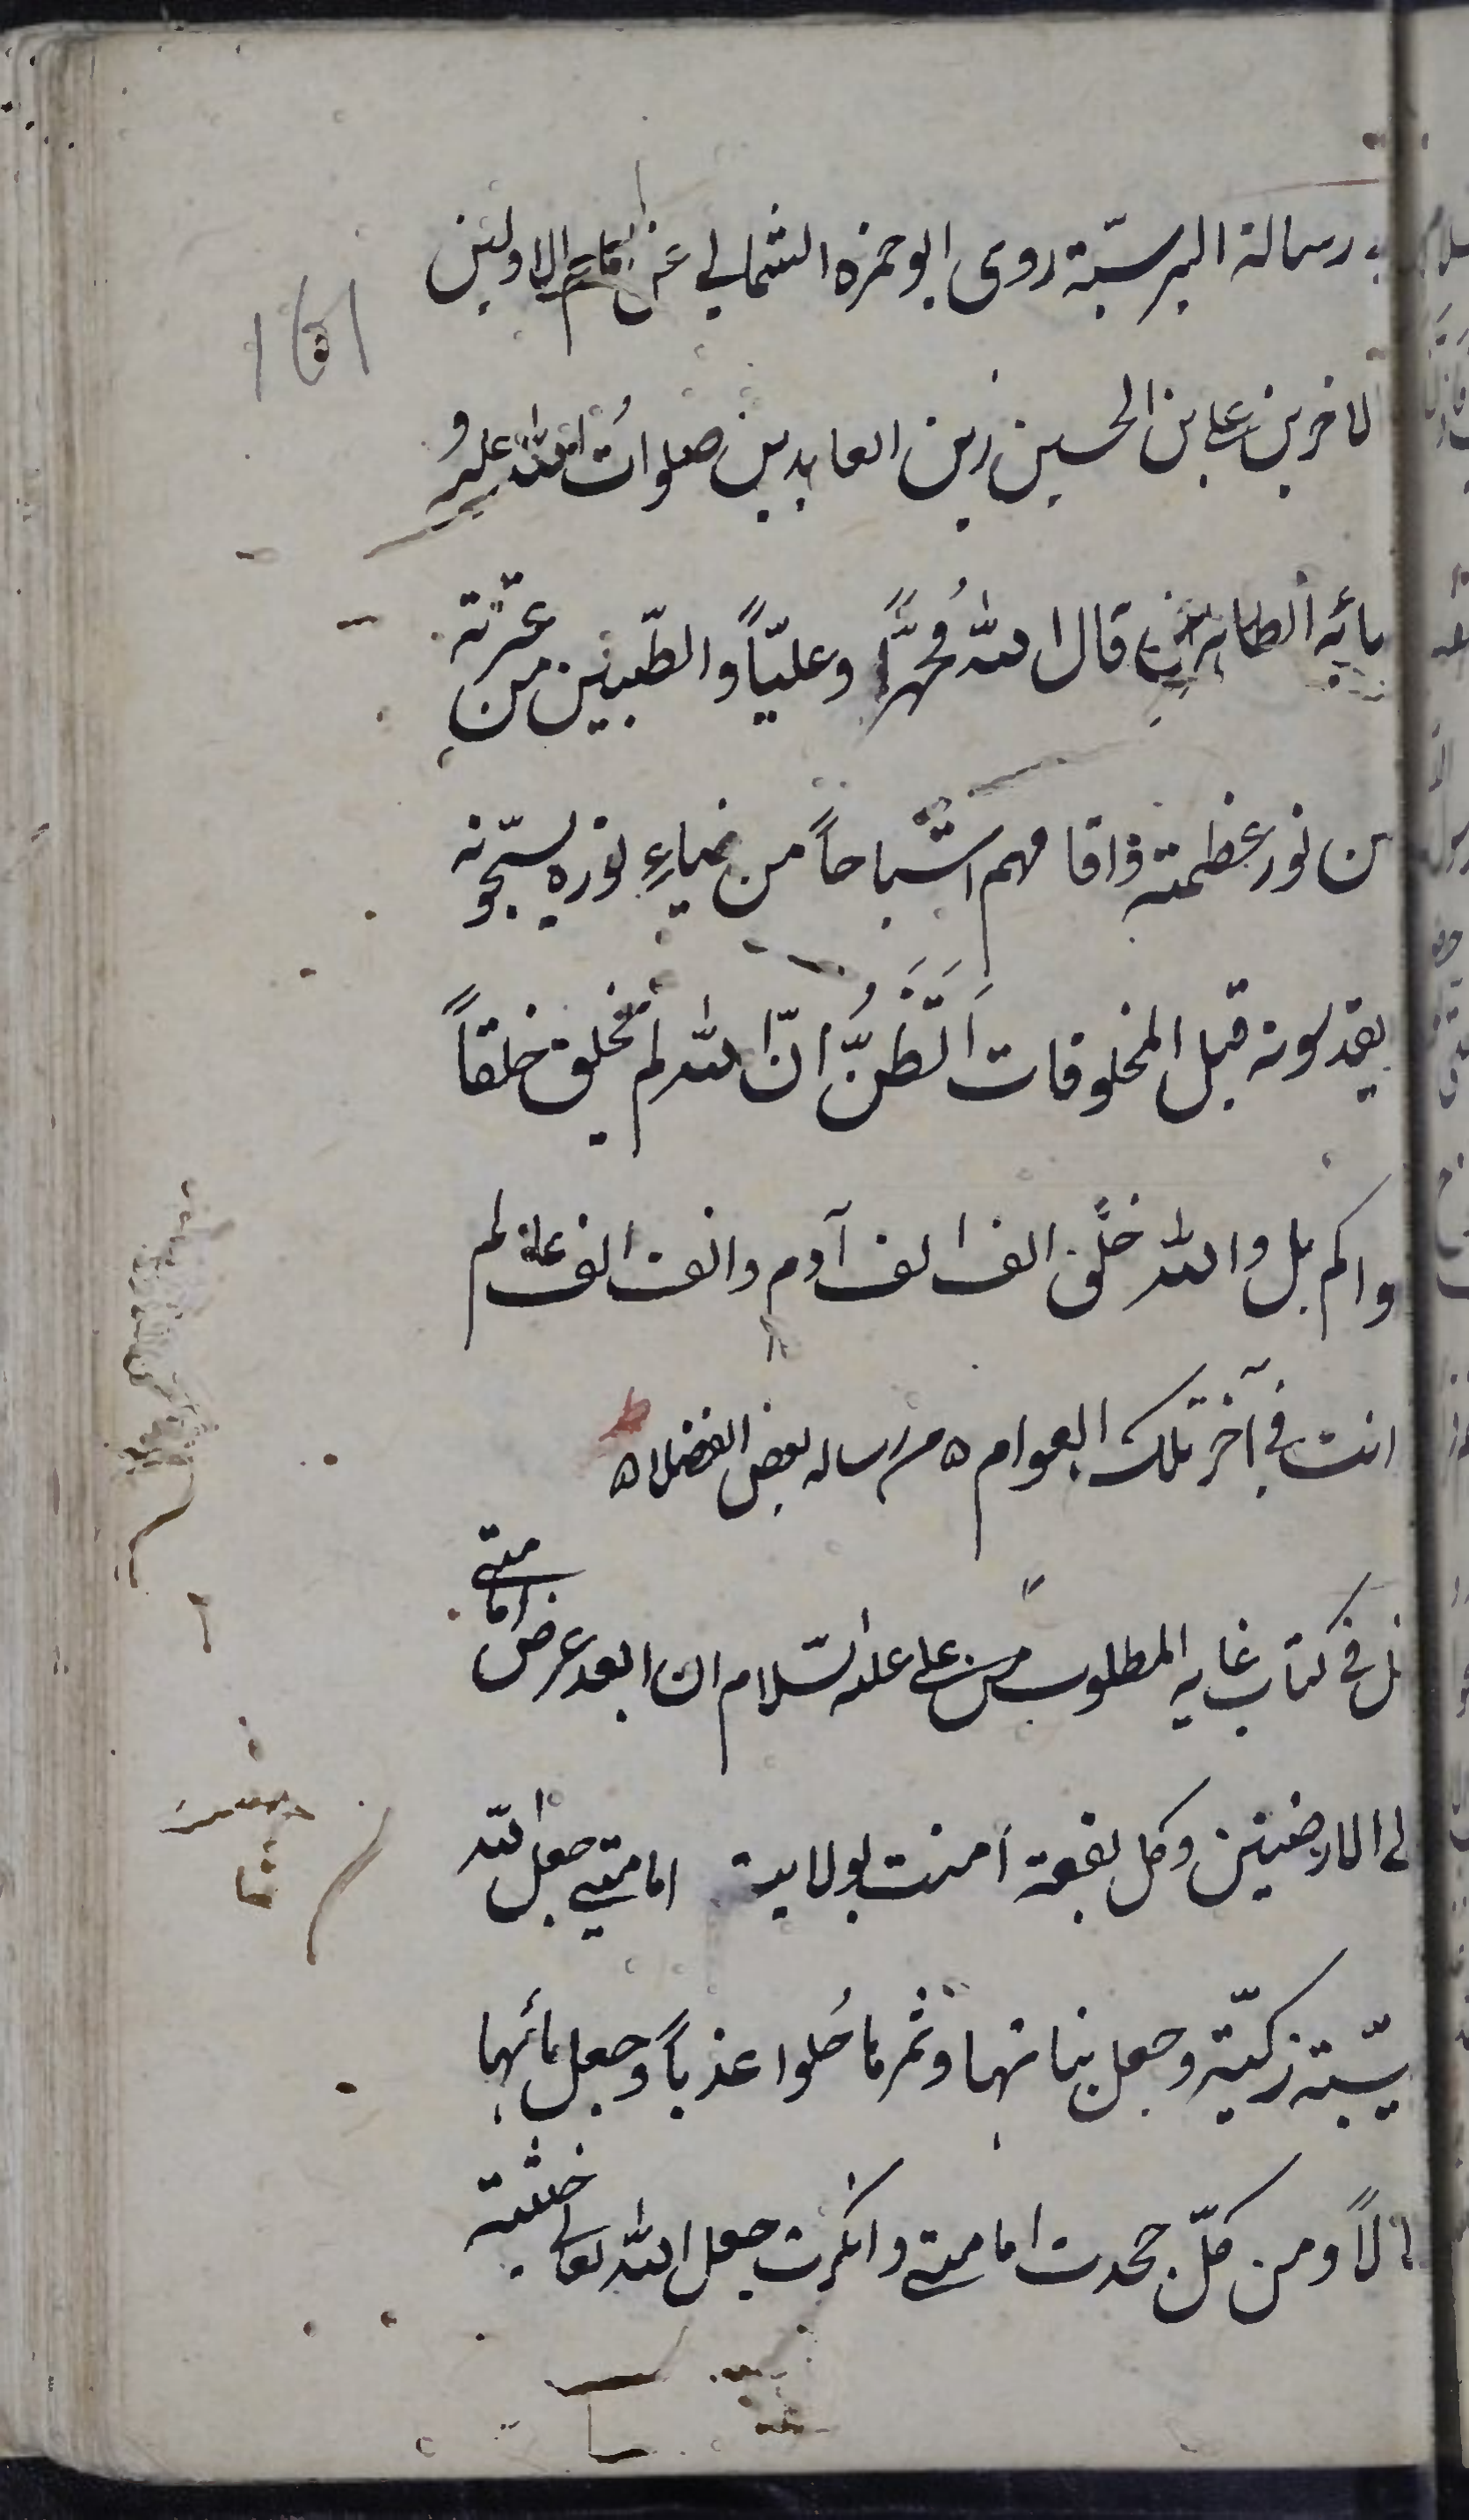 رسالة البرسیّة روی ابوحمزه الثمالی عن امام الاولین
لاخرین علی بن الحسین زین العابدین صلواتُ الله علیه و
بائه الطاهرین قال الله مُحمّداً وعلیّاً والطّیبین من عترته
من نور عظمته واقامهم اشباحاً من ضیاءِ نوره یسبّحونه
یقدسونه قبل المخلوقات اَتَظُنُّ انّ الله لم یخلق خلقاً
واکم بل والله خلق الف الف آدم والف الف عالم
انت فی آخر تلک العوالم ه من رساله بعض الفضلا ه
فی کتاب غایه المطلوب عن علی علیه السّلام ان الله عرض امامتی
لی الارضین وکل بقعة آمنت بولایة امامتی جعل الله
یّبة زکیّة وجعل نباتها وثمرها حُلوا عذباً وجعل مائها
لالاً ومن کلّ جحدت امامتی وانکرت جعل الله تعالی خبیثة
۱۵۱